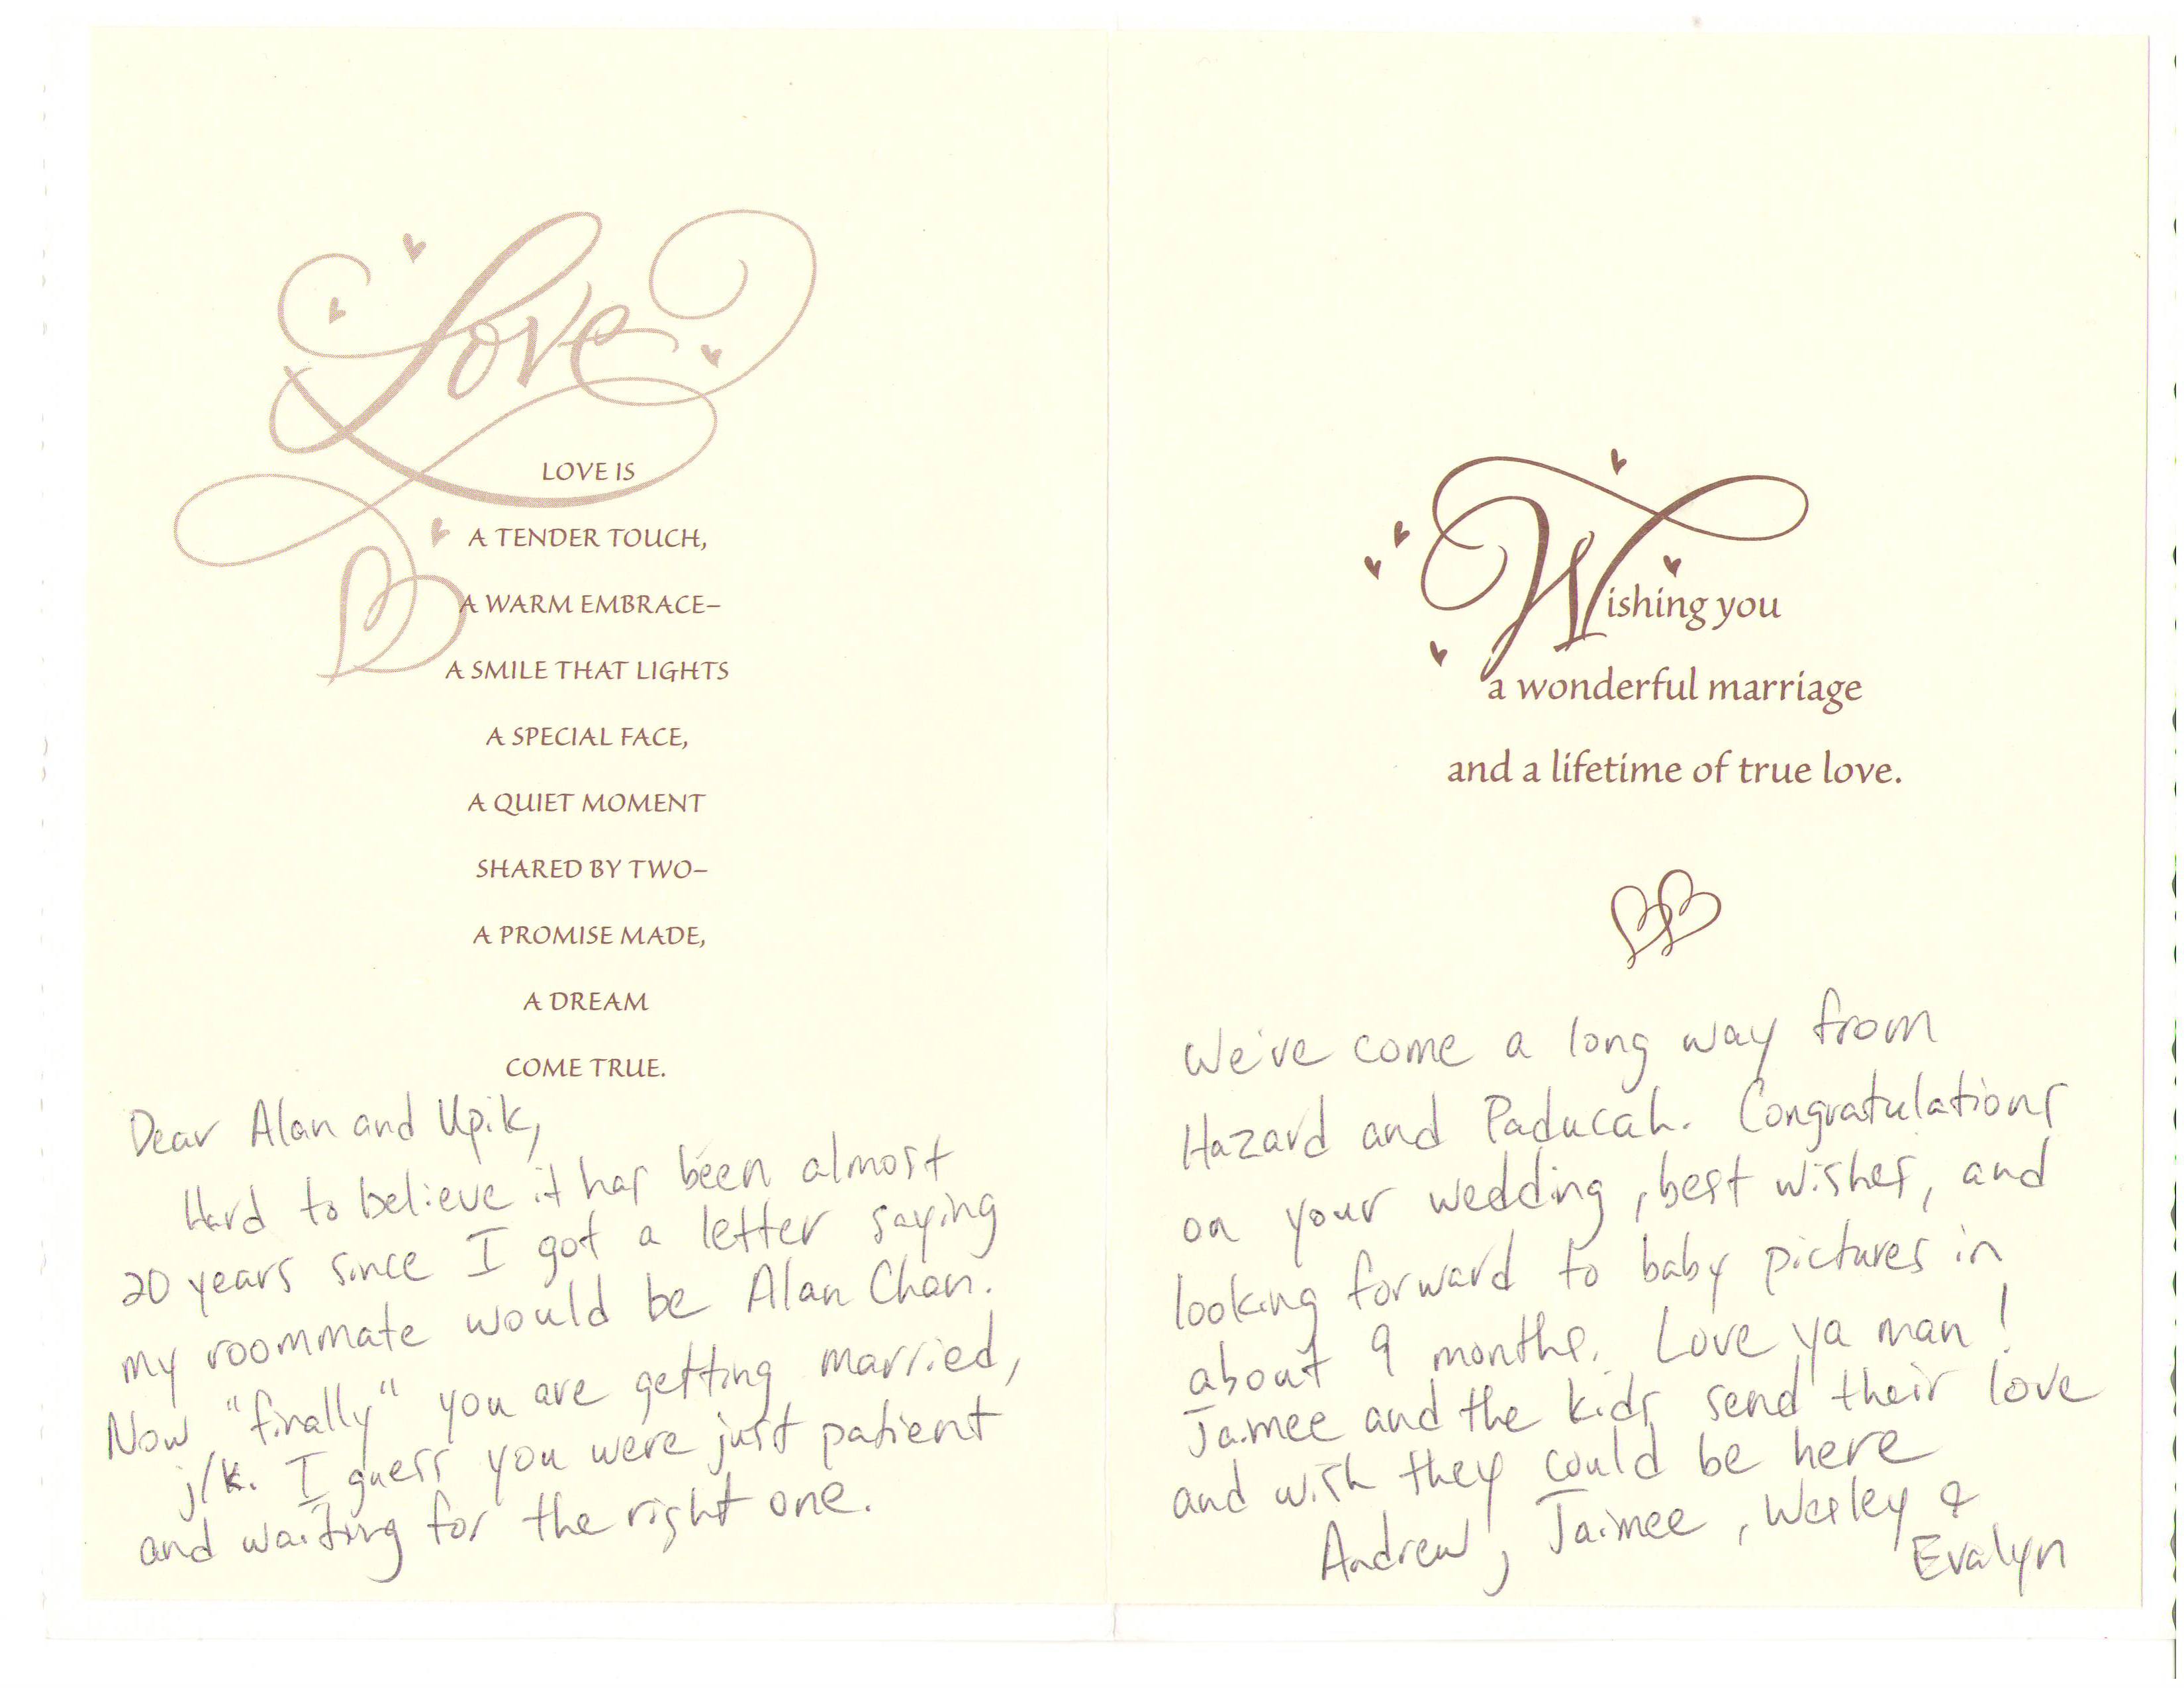 Love
LOVE IS
A TENDER TOUCH,
A WARM EMBRACE–
A SMILE THAT LIGHTS
A SPECIAL FACE,
A QUIET MOMENT
SHARED BY TWO–
A PROMISE MADE,
A DREAM
COME TRUE.
Dear Alan and Upik,
Hard to believe it has been almost
20 years since I got a letter saying
my roommate would be Alan Chan.
Now "finally" you are getting married,
j/k. I guess you were just patient
and waiting for the right one.
Wishing you
a wonderful marriage
and a lifetime of true love.
We've come a long way from
Hazard and Paducah. Congratulations
on your wedding, best wishes, and
looking forward to baby pictures in
about 9 months. Love ya man!
Jaimee and the kids send their love
and wish they could be here
Andrew, Jaimee, Wesley &
Evalyn